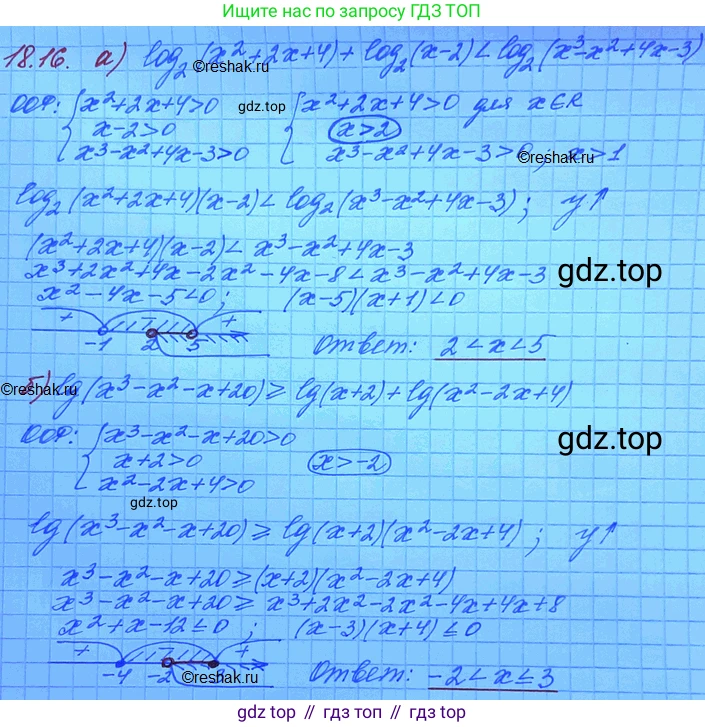 Ищите нас по запросу ГДЗ ТОП
18.16. а) log₂(x²+2x+4)+log₂(x-2)<log₂(x³-x²+4x-3)
©reshak.ru
ООФ: {x²+2x+4>0 gdz.top {x²+2x+4>0 для x∈R
x-2>0 x>2
x³-x²+4x-3>0 x³-x²+4x-3>0, x>1
©reshak.ru
log₂(x²+2x+4)(x-2)<log₂(x³-x²+4x-3); y↑
(x²+2x+4)(x-2)<x³-x²+4x-3
x³+2x²+4x-2x²-4x-8<x³-x²+4x-3
gdz.top
x²-4x-5<0; (x-5)(x+1)<0
+ - +
-1 2 5 Ответ: 2<x<5
©reshak.ru
б) lg(x³-x²-x+20)≥lg(x+2)+lg(x²-2x+4)
ООФ: {x³-x²-x+20>0
gdz.top
x+2>0 x>-2
x²-2x+4>0
gdz.top
lg(x³-x²-x+20)≥lg(x+2)(x²-2x+4); y↑
x³-x²-x+20≥(x+2)(x²-2x+4)
x³-x²-x+20≥x³+2x²-2x²-4x+4x+8
x²+x-12≤0; (x-3)(x+4)≤0
+ - +
-4 -2 ©reshak.ru Ответ: -2<x≤3
gdz top // гдз топ // gdz.top